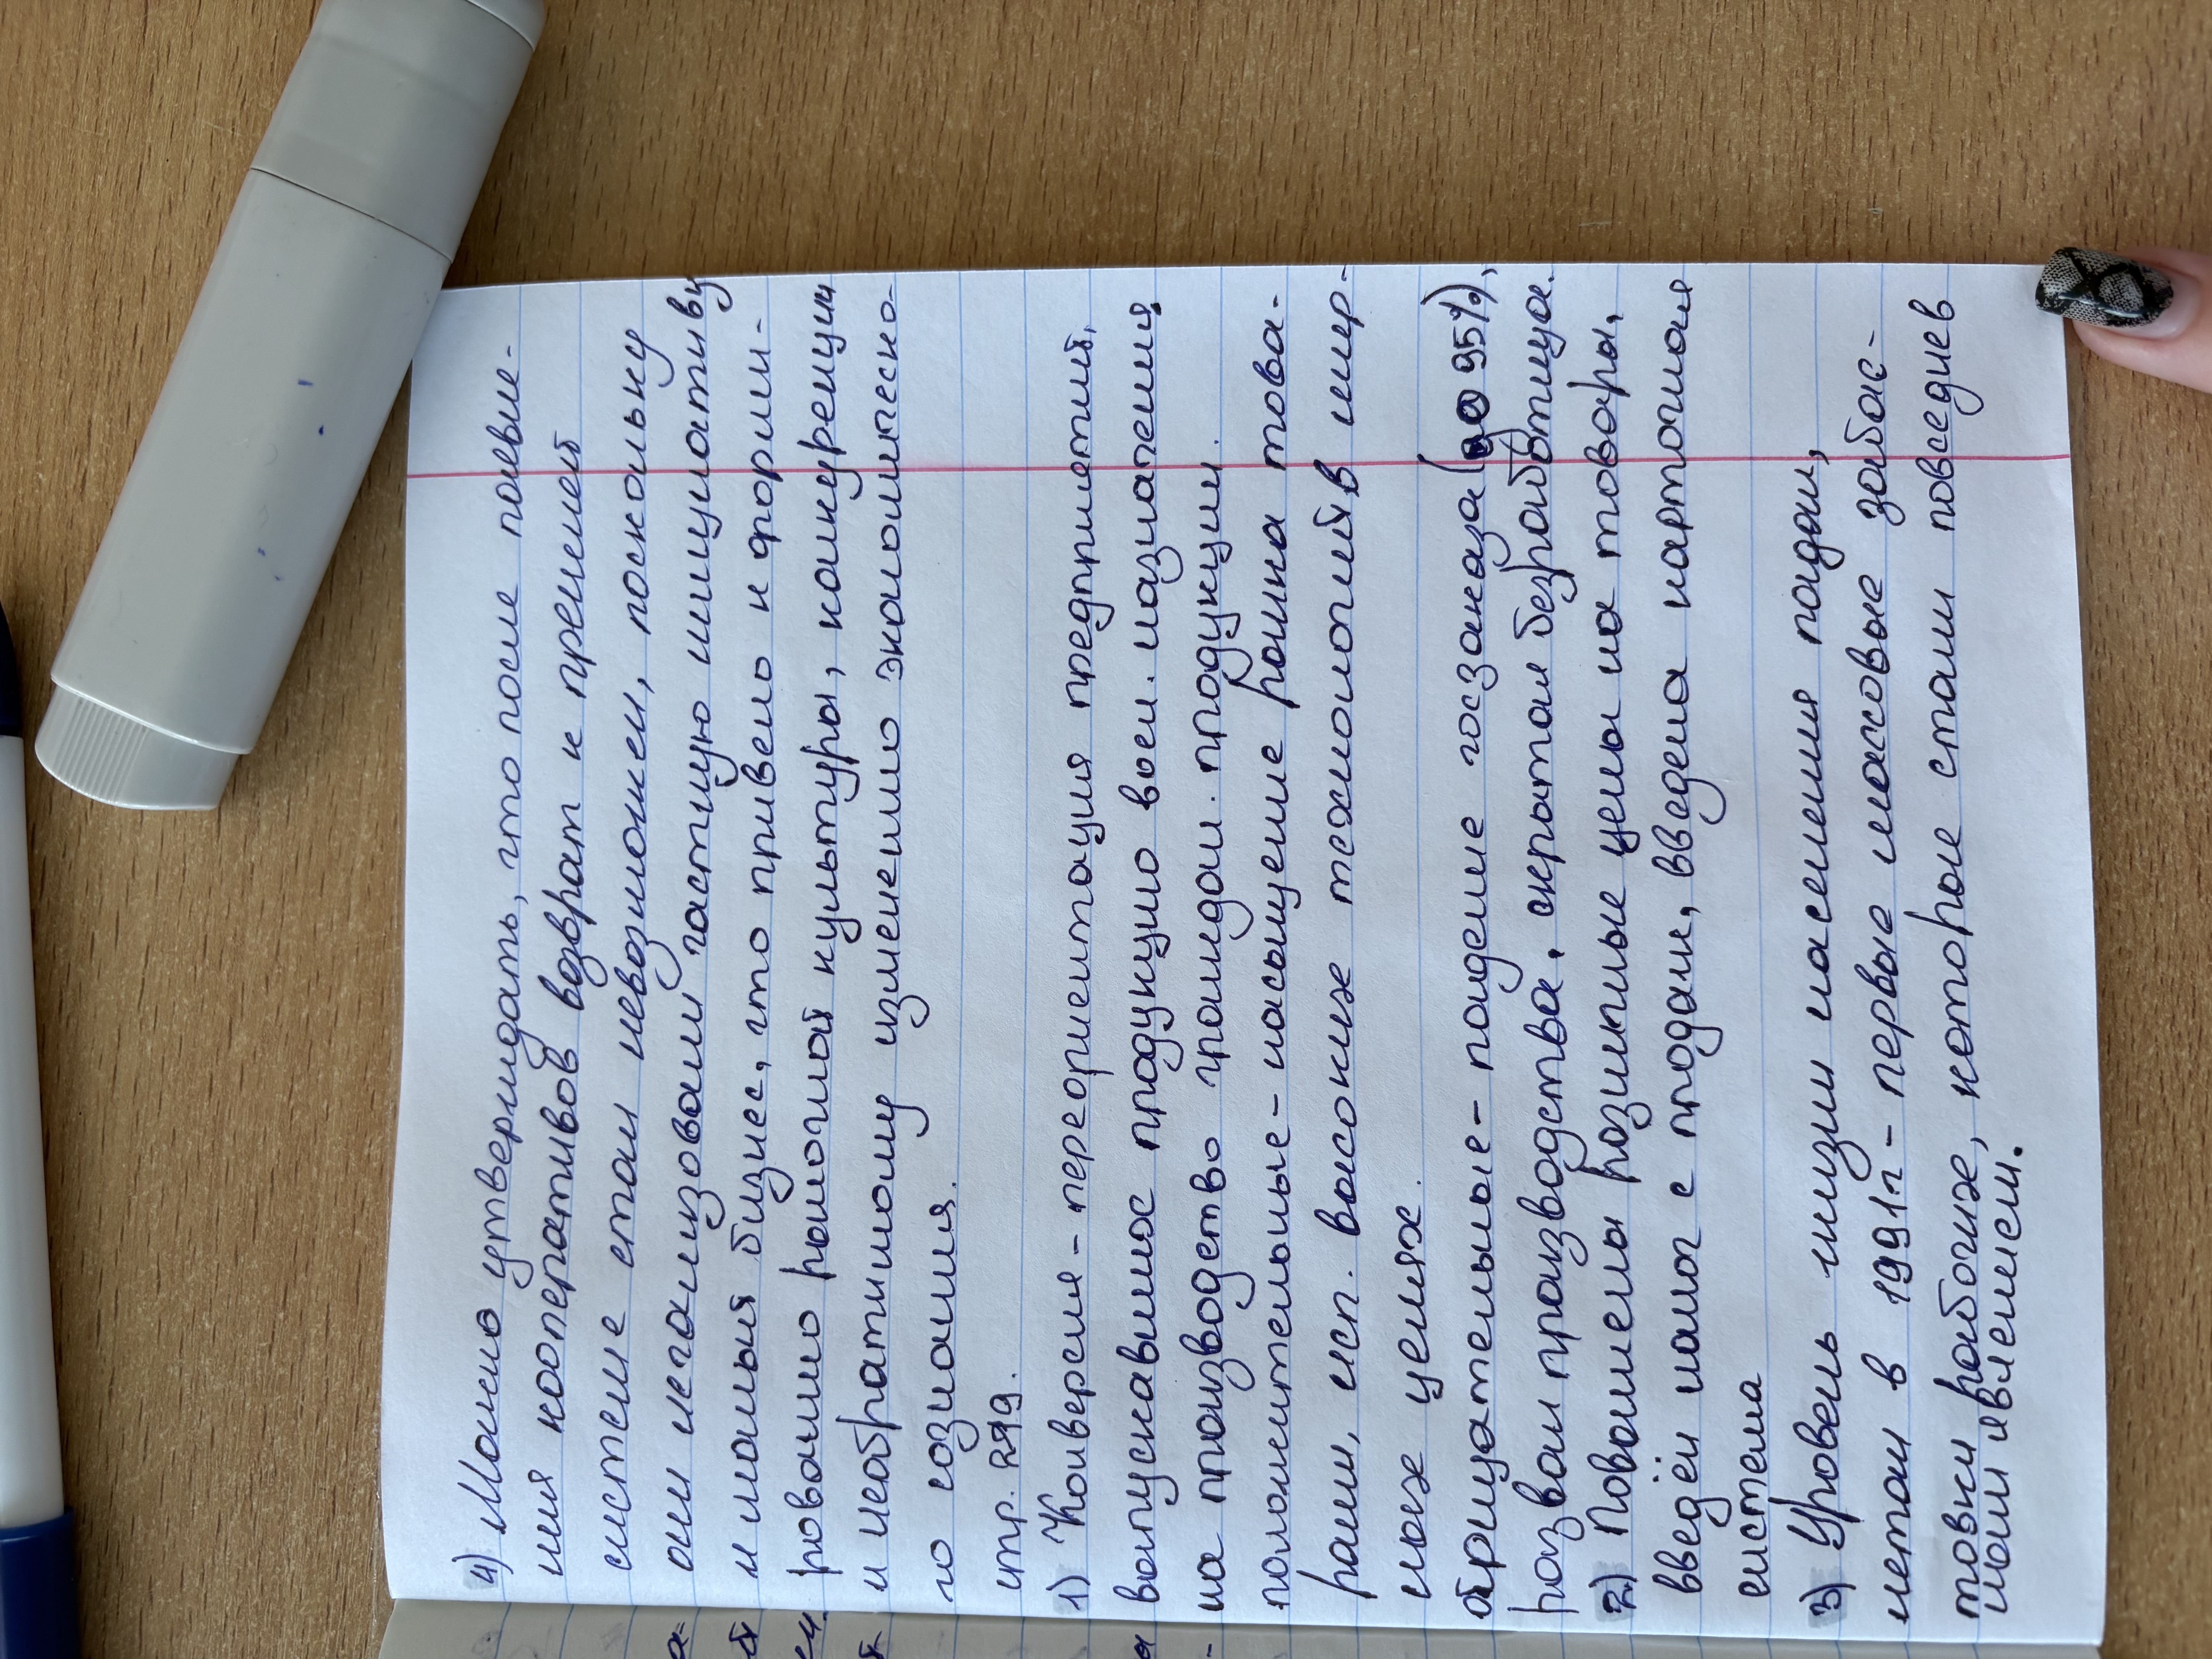 4) Можно утверждать, что после появле-
ния кооперативов возврат к прежней
системе стал невозможен, поскольку
они легализовали частную инициативу
и малый бизнес, что привело к форми-
рованию рыночной культуры, конкуренции
и необратимому изменению экономическо-
го сознания.
стр. 299.
1) Конверсия - переориентация предприятий,
выпускавших продукцию воен. назначения
на производство граждан. продукции.
положительные - насыщение рынка това-
рами, исп. высоких технологий в мир-
ных целях.
отрицательные - падение госзаказа (до 95%),
развал производства, скрытая безработица.
2) Повышены розничные цены на товары,
введён налог с продаж, введена карточная
система
3) Уровень жизни населения падал,
летом в 1991г - первые массовые забас-
товки рабочих, которые стали повседнев
ным явлением.
а-
й
ем
й
ы
-